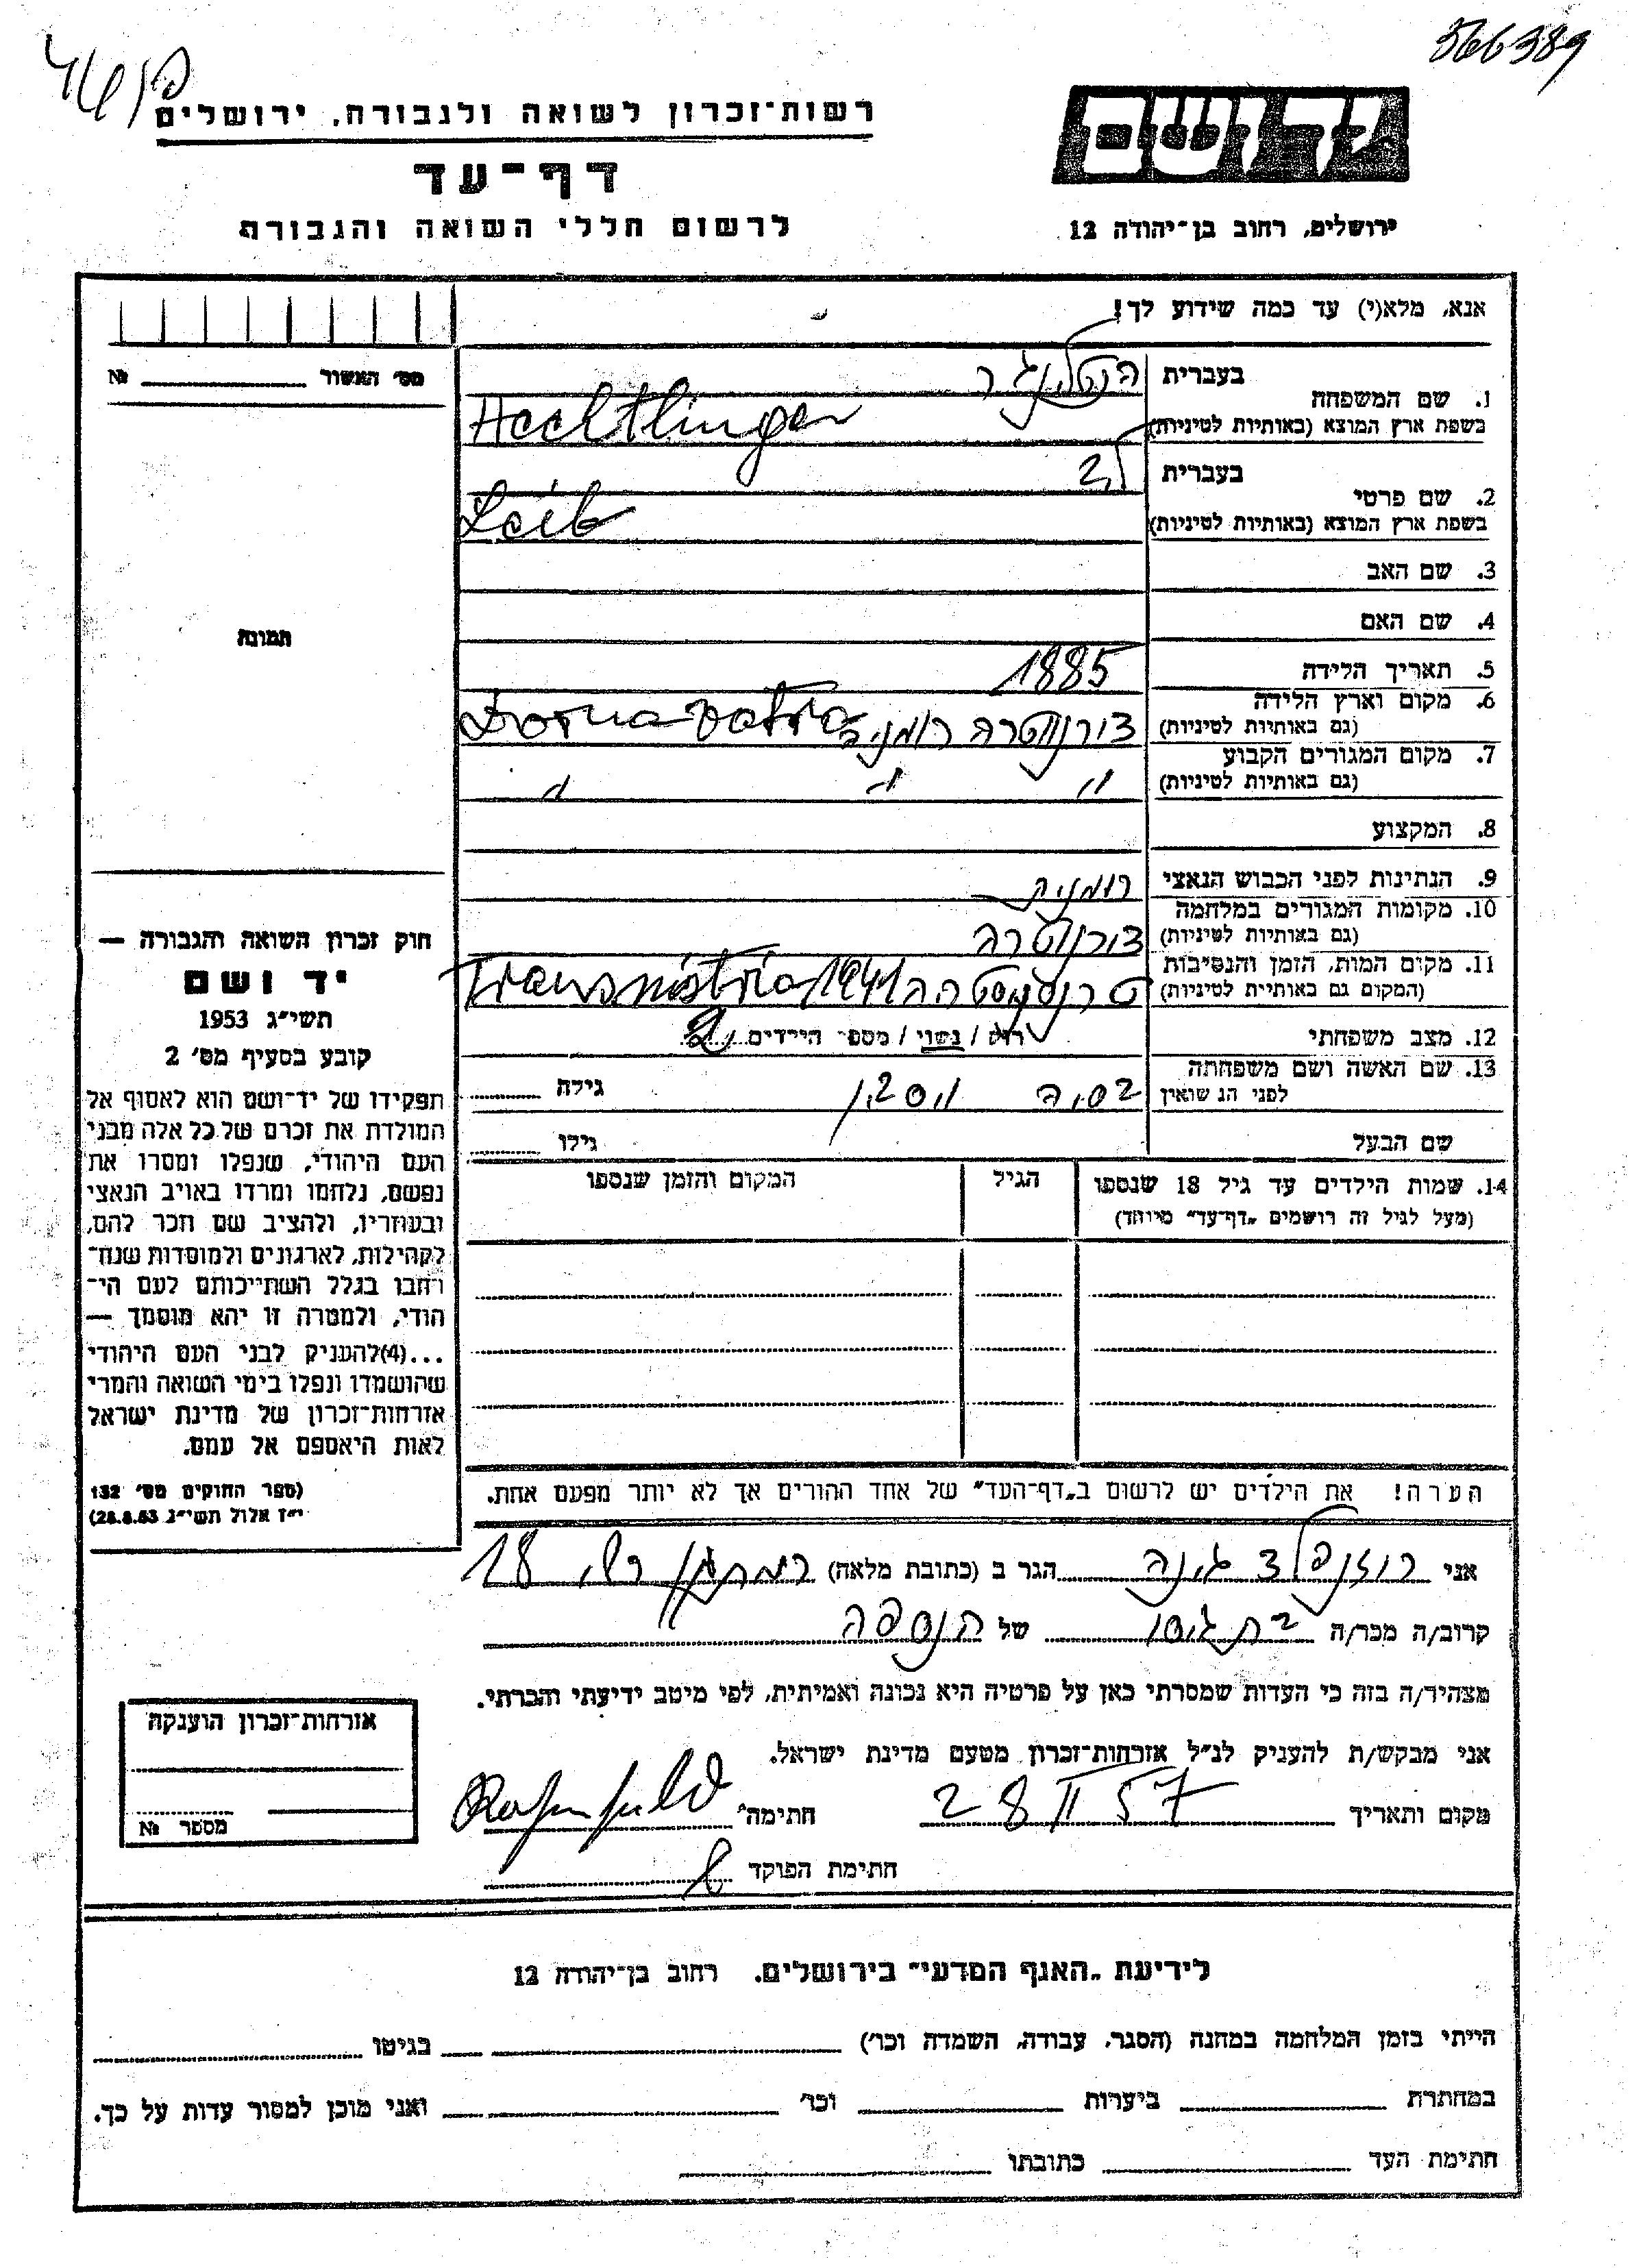 366389
רשות־זכרון לשואה ולגבורה, ירושלים
יד ושם
דף־עד
ירושלים, רחוב בן־יהודה 12
לרשום חללי השואה והגבורה
אנא, מלא(י) עד כמה שידוע לך!
מס' האשור № 
תמונה
1. שם המשפחה
בעברית הכטלינגר
בשפת ארץ המוצא (באותיות לטיניות) Hechtlinger
2. שם פרטי
בעברית ליב
בשפת ארץ המוצא (באותיות לטיניות) Leib
3. שם האב
4. שם האם
5. תאריך הלידה 1885
6. מקום וארץ הלידה
(גם באותיות לטיניות) דורנווטרה רומניה Dorna Vatra
7. מקום המגורים הקבוע
(גם באותיות לטיניות) " " "
8. המקצוע
9. הנתינות לפני הכבוש הנאצי רומנית
10. מקומות המגורים במלחמה
(גם באותיות לטיניות) דורנווטרה
11. מקום המות, הזמן והנסיבות
(המקום גם באותיות לטיניות) 1941 Transnistria
12. מצב משפחתי רוק / נשוי / מספר הילדים 2
13. שם האשה ושם משפחתה
לפני הנשואין גילה
שם הבעל גילו
14. שמות הילדים עד גיל 18 שנספו הגיל המקום והזמן שנספו
(מעל לגיל זה רושמים „דף־עד" מיוחד)
הערה! את הילדים יש לרשום ב„דף־העד" של אחד ההורים אך לא יותר מפעם אחת.
חוק זכרון השואה והגבורה —
יד ושם
תשי"ג 1953
קובע בסעיף מס' 2
תפקידו של יד־ושם הוא לאסוף אל
המולדת את זכרם של כל אלה מבני
העם היהודי, שנפלו ומסרו את
נפשם, נלחמו ומרדו באויב הנאצי
ובעוזריו, ולהציב שם וזכר להם,
לקהילות, לארגונים ולמוסדות שנח־
רבו בגלל השתייכותם לעם הי־
הודי, ולמטרה זו יהא מוסמך —
...(4) להעניק לבני העם היהודי
שהושמדו ונפלו בימי השואה והמרי
אזרחות־זכרון של מדינת ישראל
לאות היאספם אל עמם.
(ספר החוקים מס' 132
י"ז אלול תשי"ג 28.8.53)
אני רוזנפלד הגר ב (כתובת מלאה) רמת גן 18
קרוב/ה מכר/ה בת גיסו של הנספה
מצהיר/ה בזה כי העדות שמסרתי כאן על פרטיה היא נכונה ואמיתית, לפי מיטב ידיעתי והכרתי.
אני מבקש/ת להעניק לנ"ל אזרחות־זכרון מטעם מדינת ישראל.
מקום ותאריך 28 II 57 חתימה Rosenfeld
חתימת הפוקד
אזרחות־זכרון הוענקה
מספר №
לידיעת „האגף המדעי" בירושלים. רחוב בן־יהודה 12
הייתי בזמן המלחמה במחנה (הסגר, עבודה, השמדה וכו') בגיטו
במחתרת ביערות וכו' ואני מוכן למסור עדות על כך.
חתימת העד כתובתו